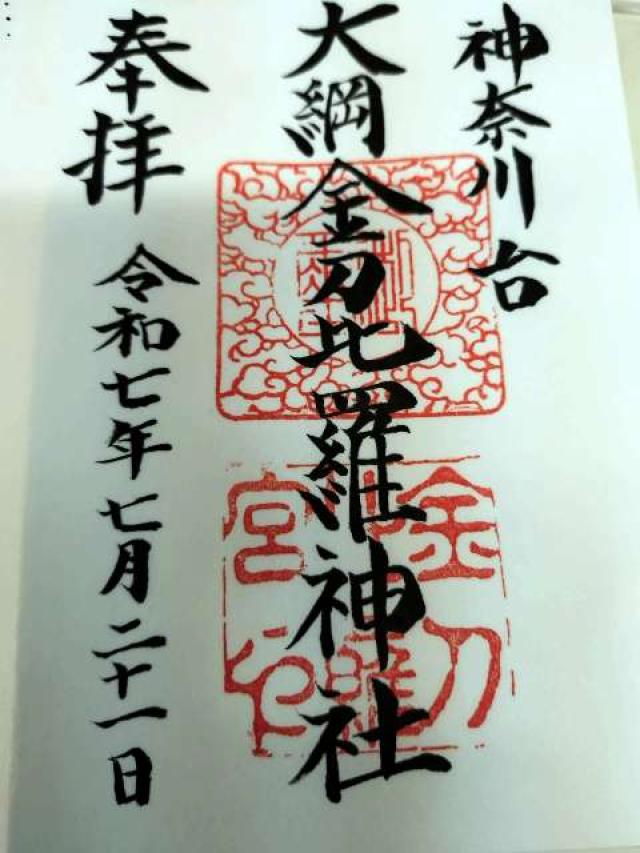 神奈川台
大綱金刀比羅神社
奉拝
令和七年七月二十一日